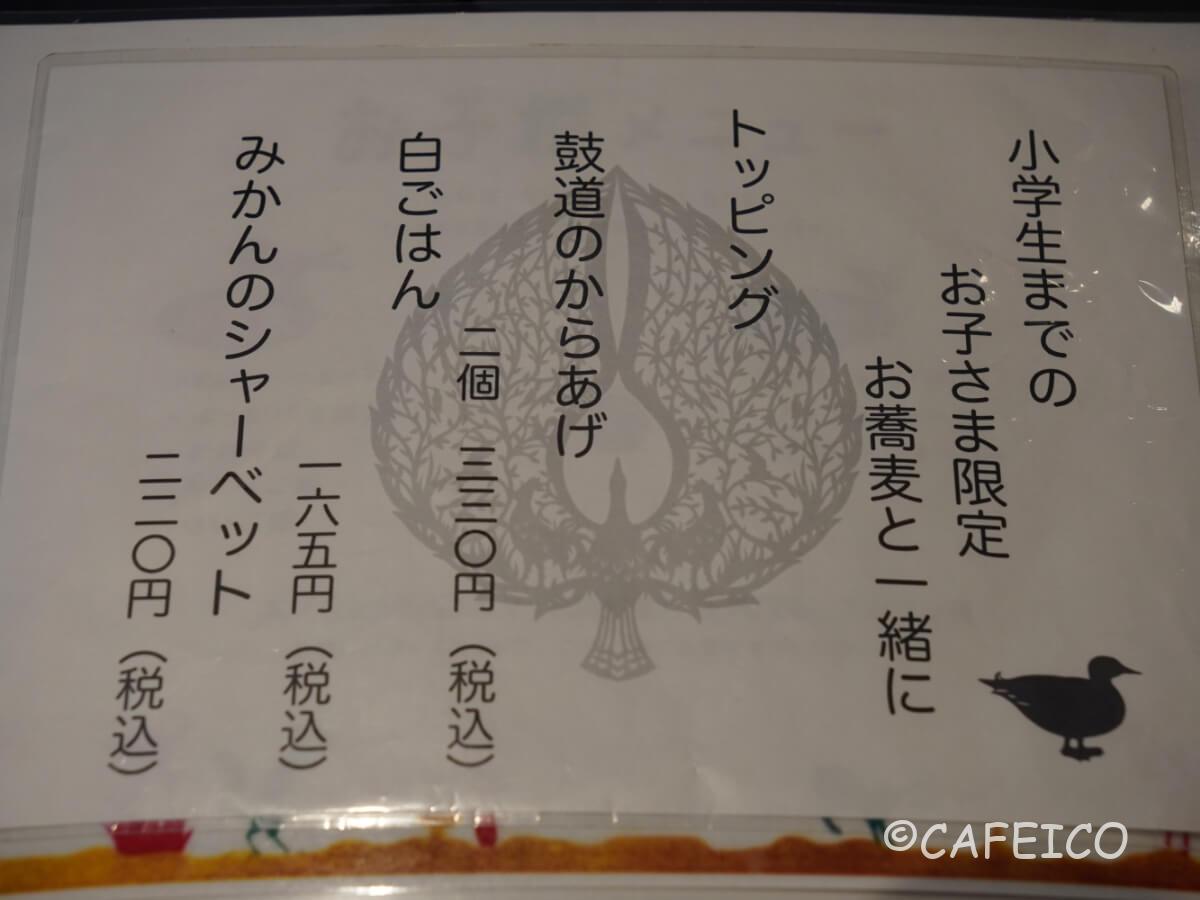 小学生までの
お子さま限定
お蕎麦と一緒に
トッピング
鼓道のからあげ
二個 三三〇円（税込）
白ごはん
一六五円（税込）
みかんのシャーベット
二二〇円（税込）
©CAFEICO